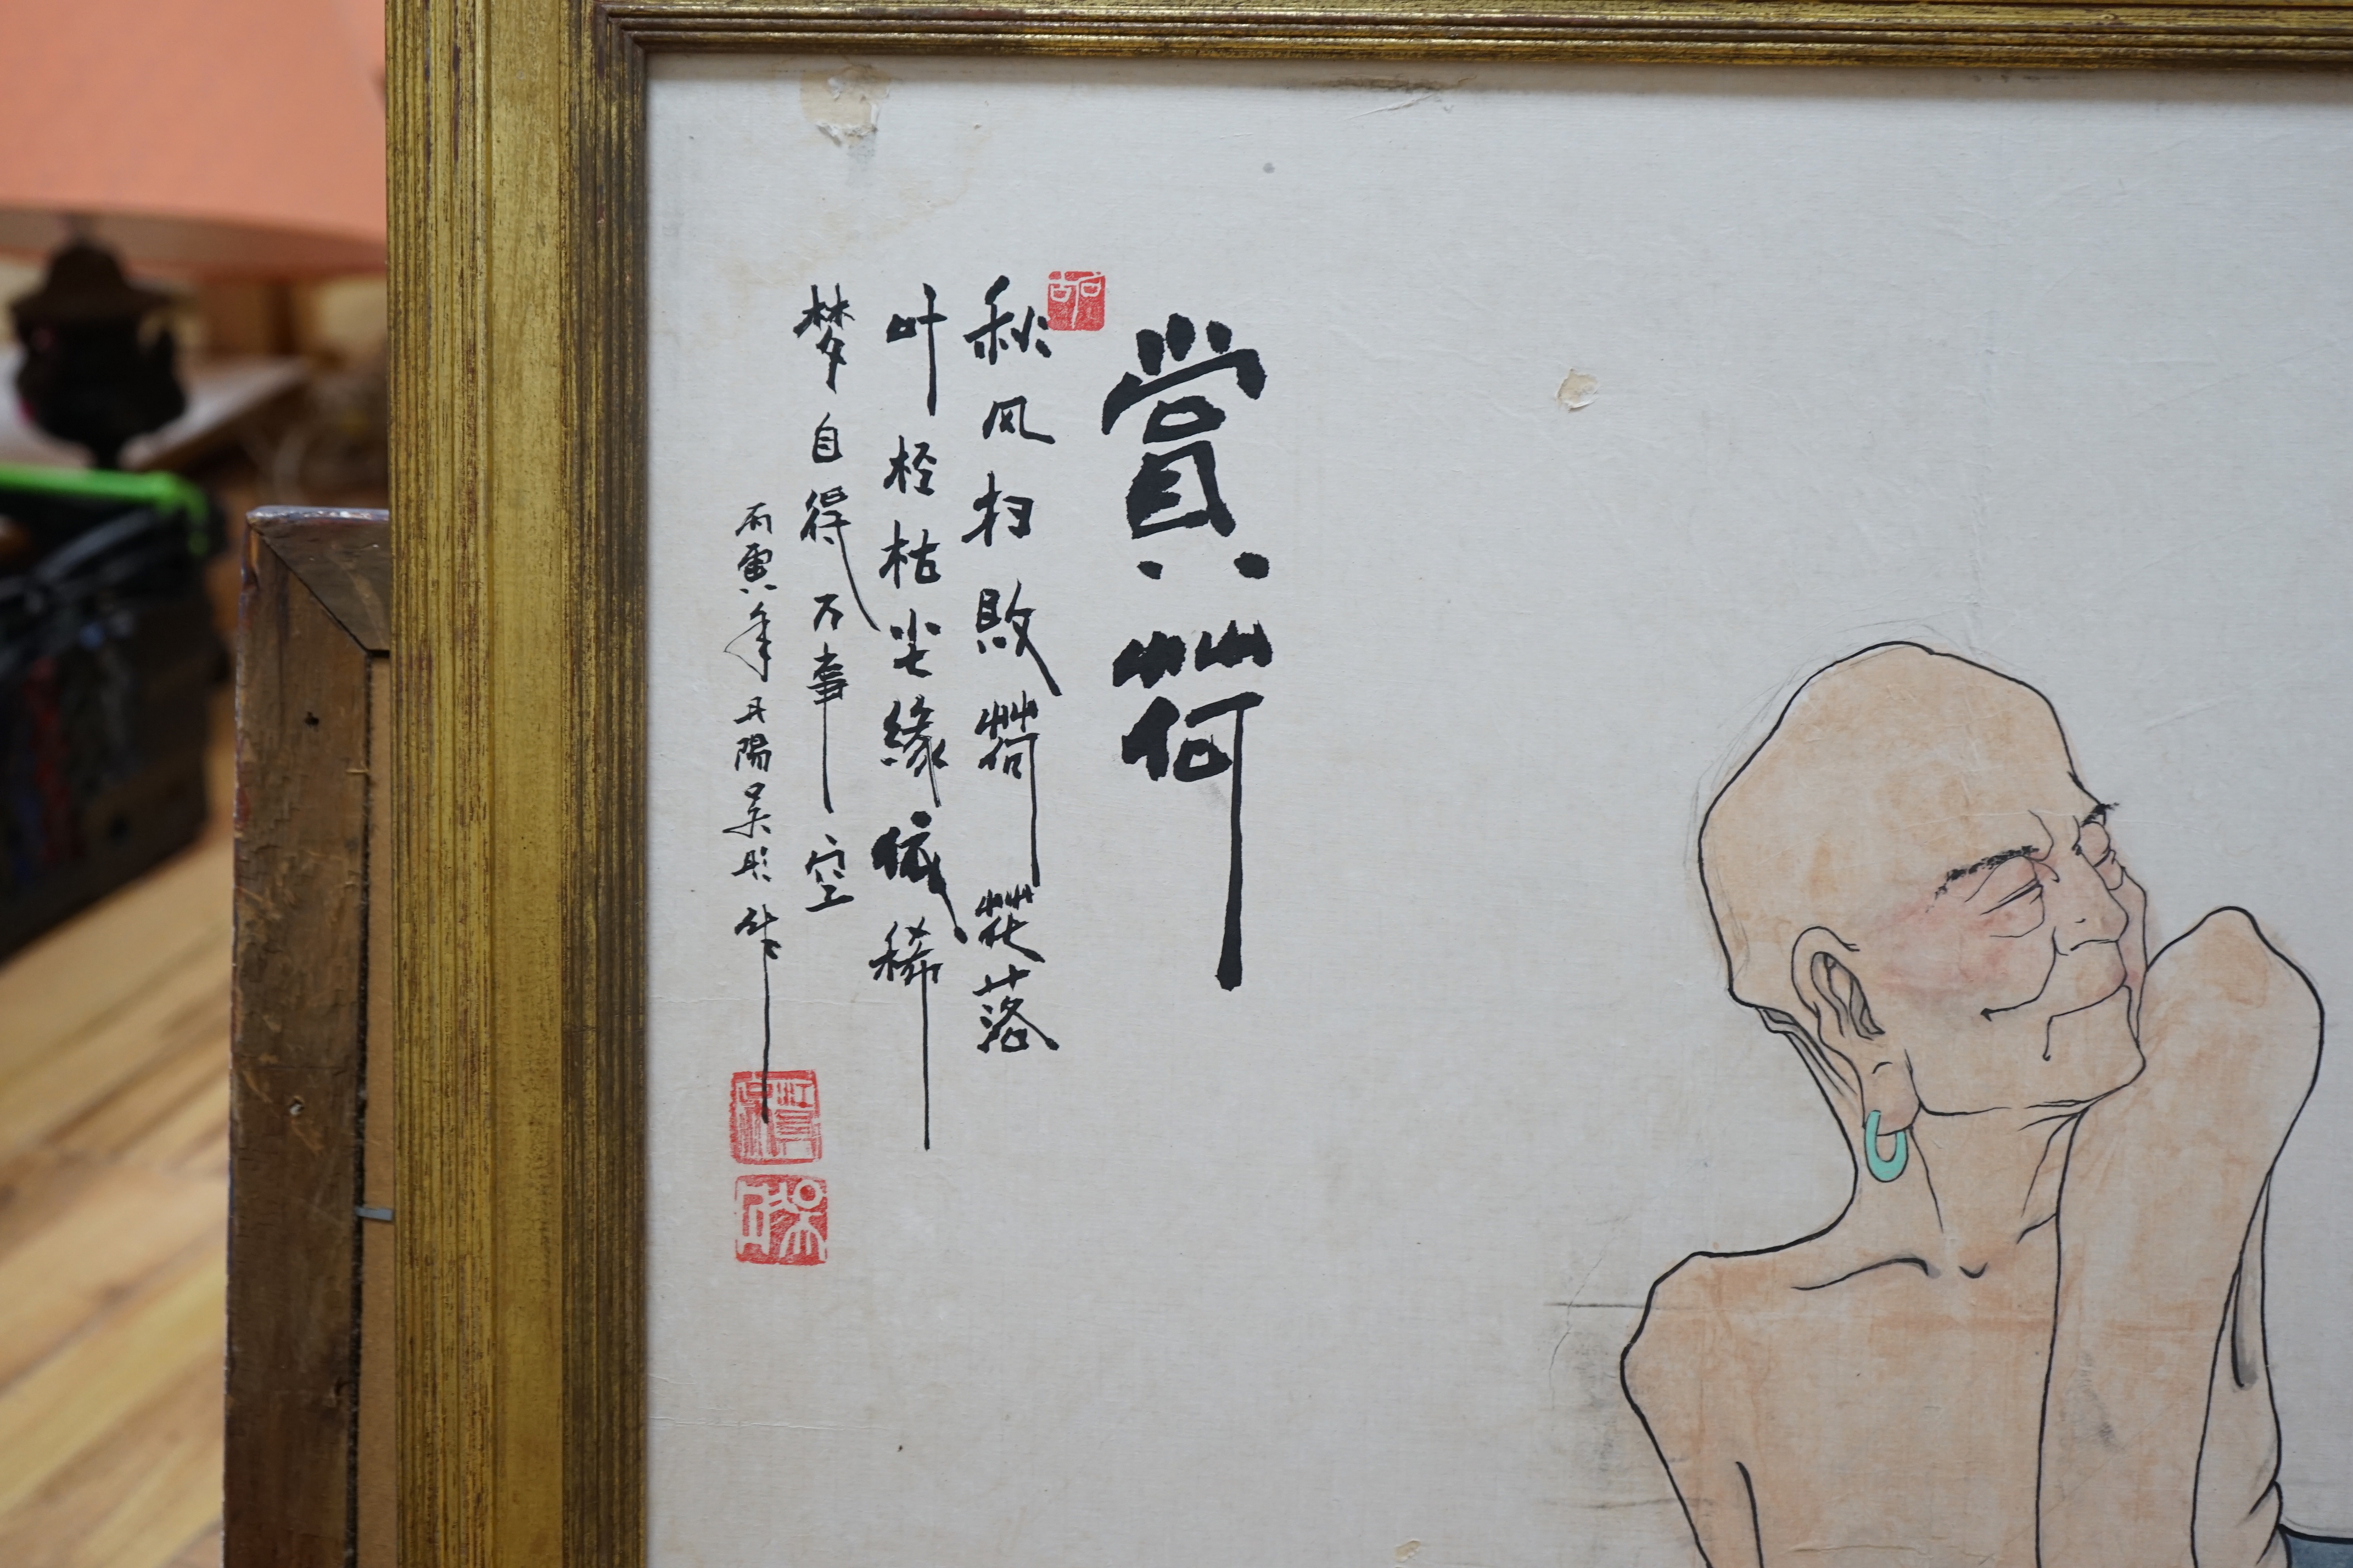 賞荷
秋风扫敗荷花落
叶枯尘緣依稀
梦自得万事空
丙寅年丹陽吴彤作